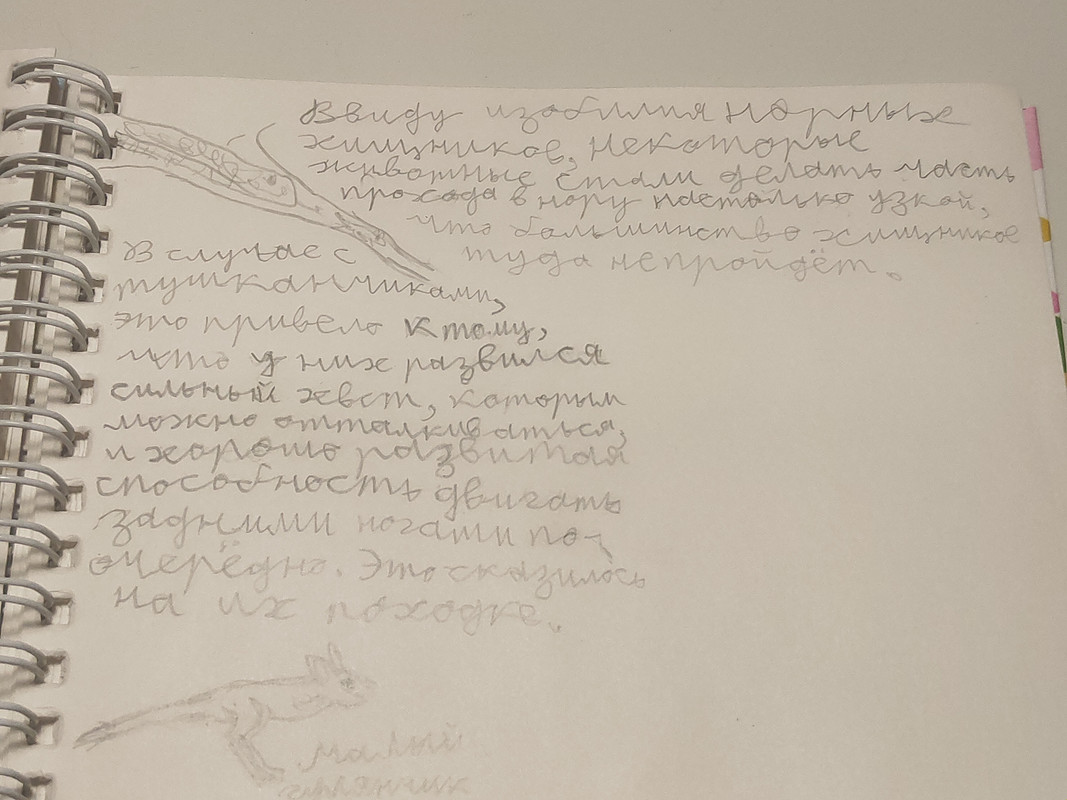 Ввиду изобилия норных
хищников, некаторые
животные стали делать часть
прохода в нору настолько узкой,
что большинство хищников
туда непройдёт.
В случае с
тушканчиками,
это привело к тому,
что у них развился
сильный хвст, которым
можно отталкиваться,
и хорошо развитая
способность двигать
задними ногами по-
очерёдно. Это сказилось
на их походке.
малый